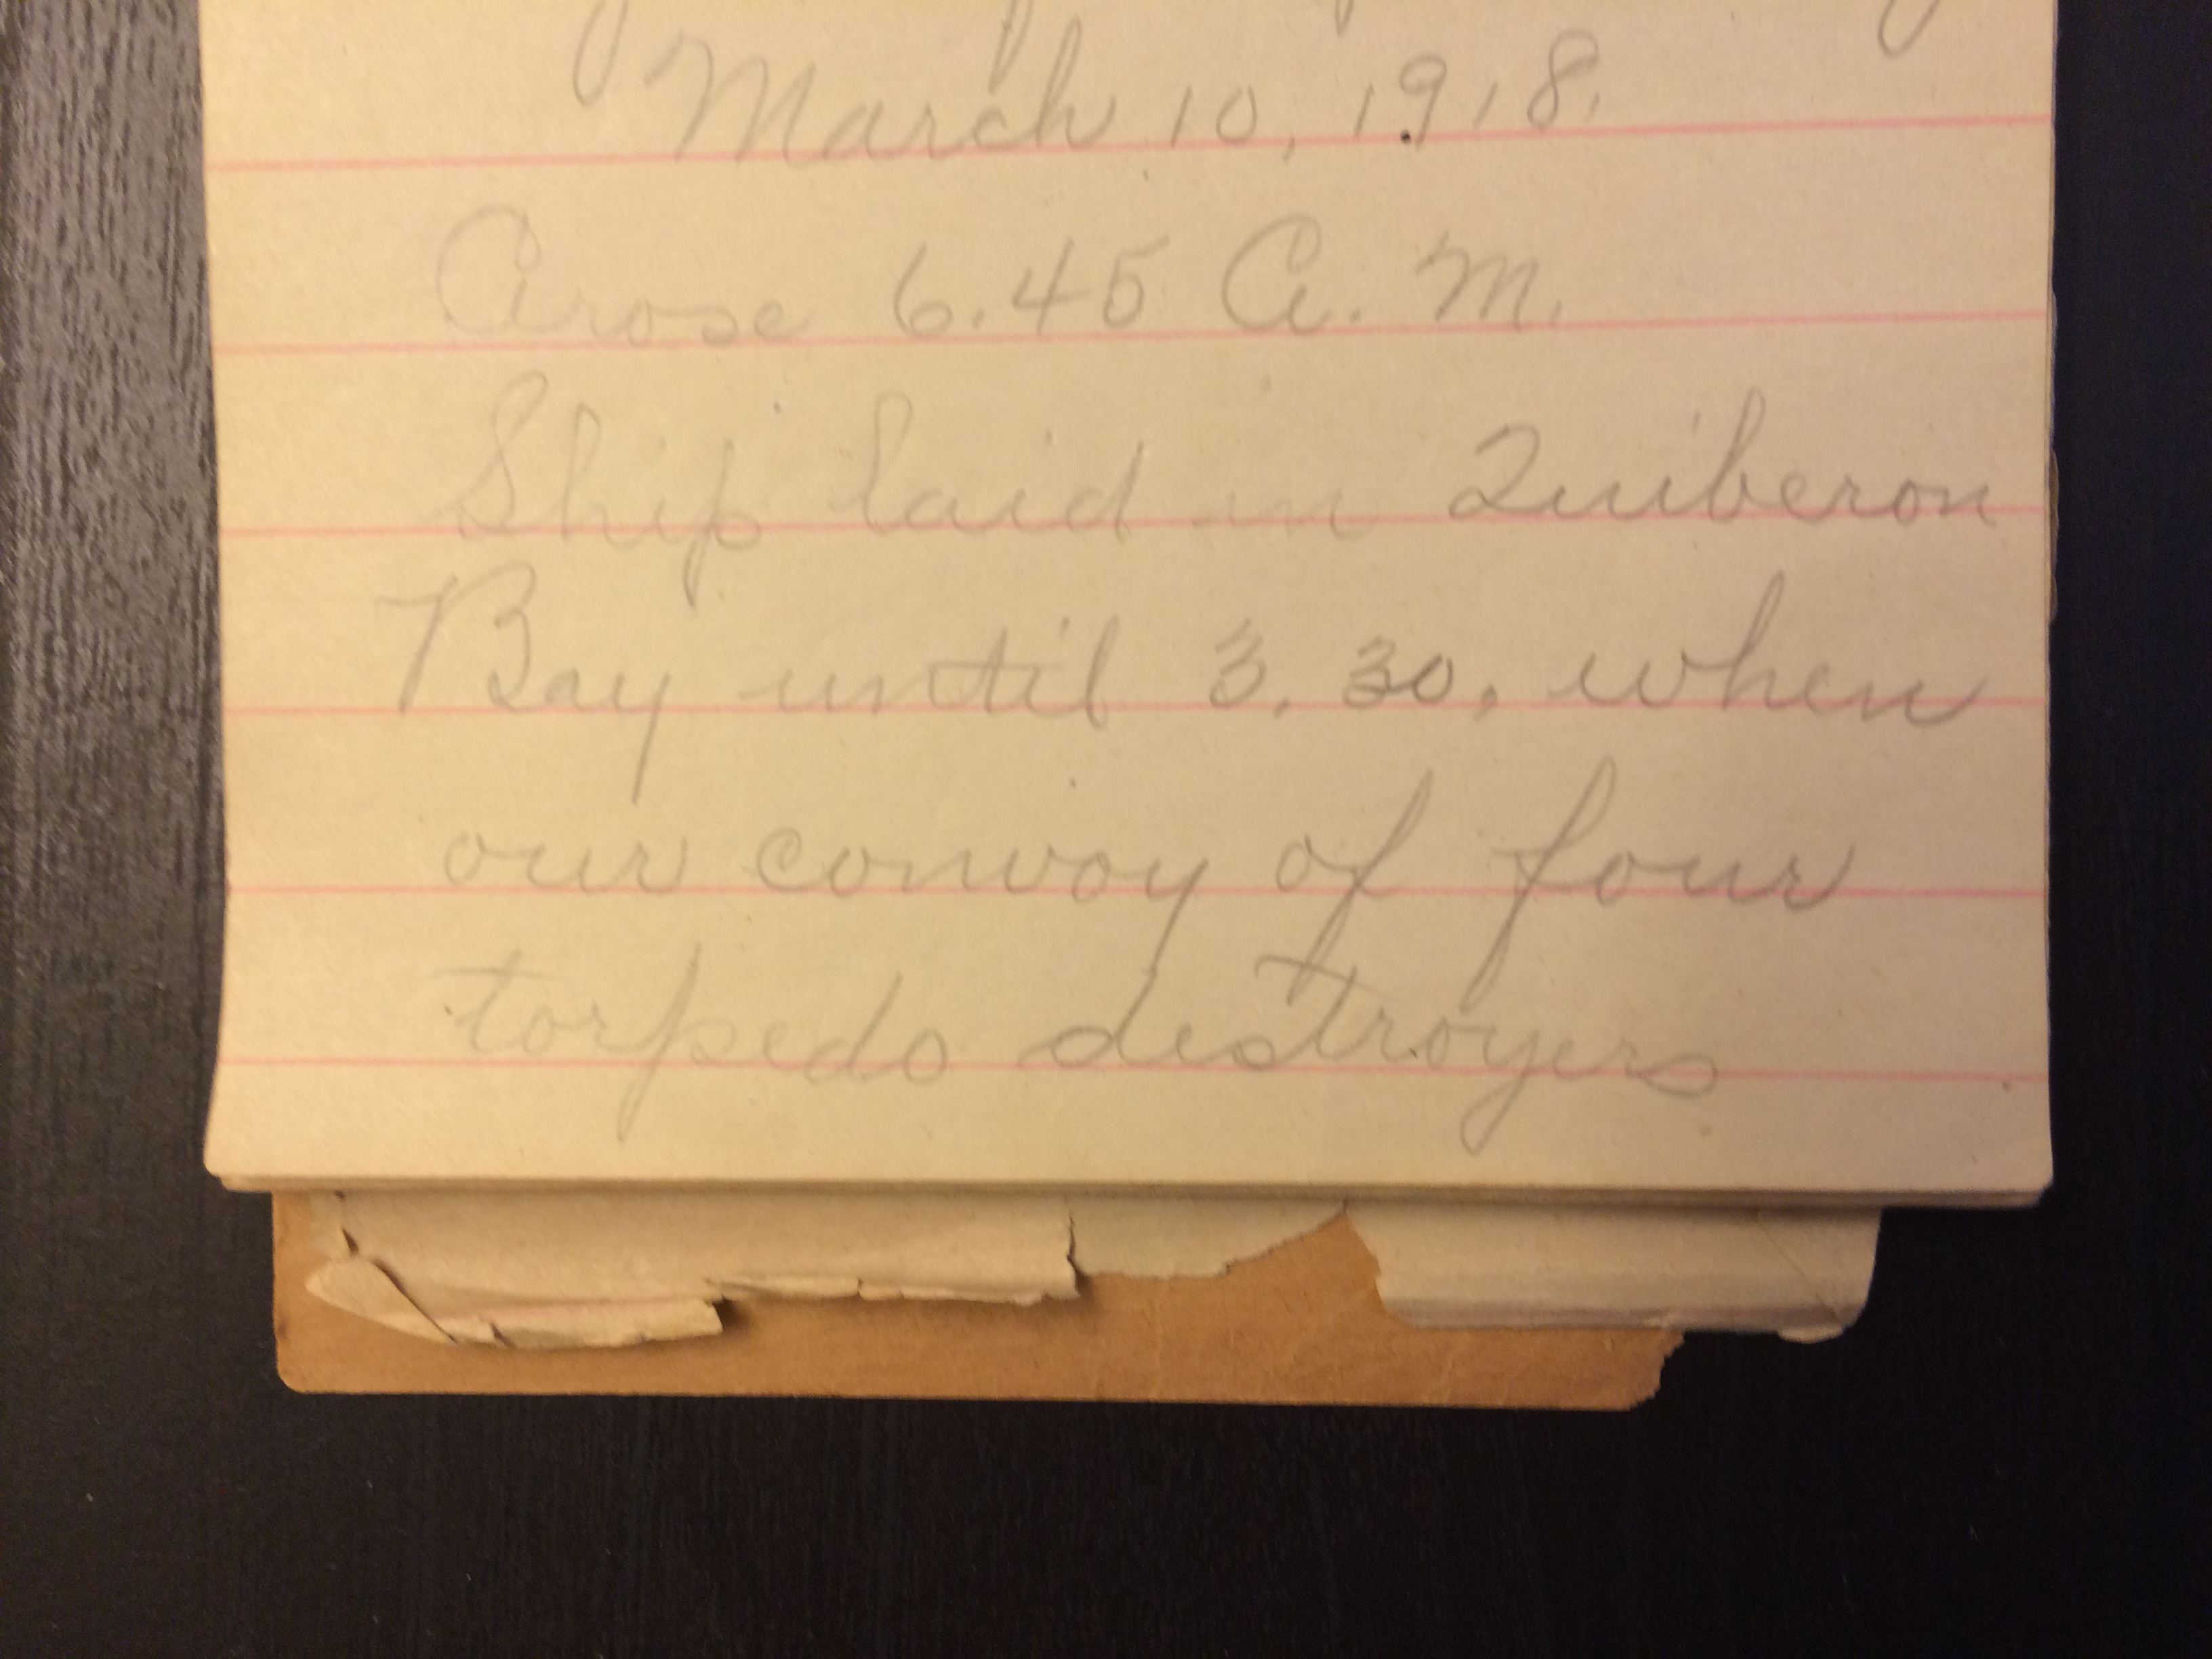 March 10, 1918.
Arose 6.45 A. M.
Ship laid in Quiberon
Bay until 3.30, when
our convoy of four
torpedo destroyers